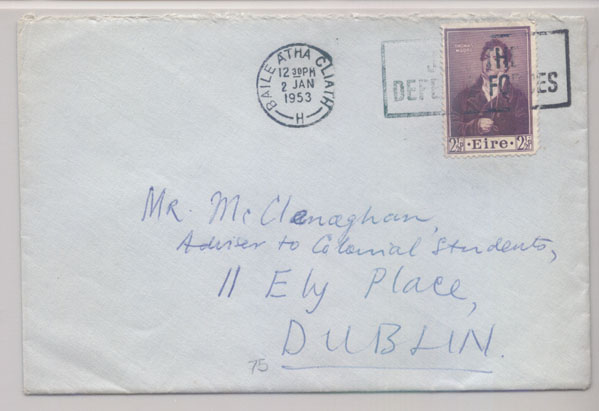 BAILE ÁTHA CLIATH
12 30PM
2 JAN
1953
H
THE
DEFE FO ES
2½ᴾ Eire 2½ᴾ
Mr. McClenaghan,
Adviser to Colonial Students,
11 Ely Place,
DUBLIN.
75